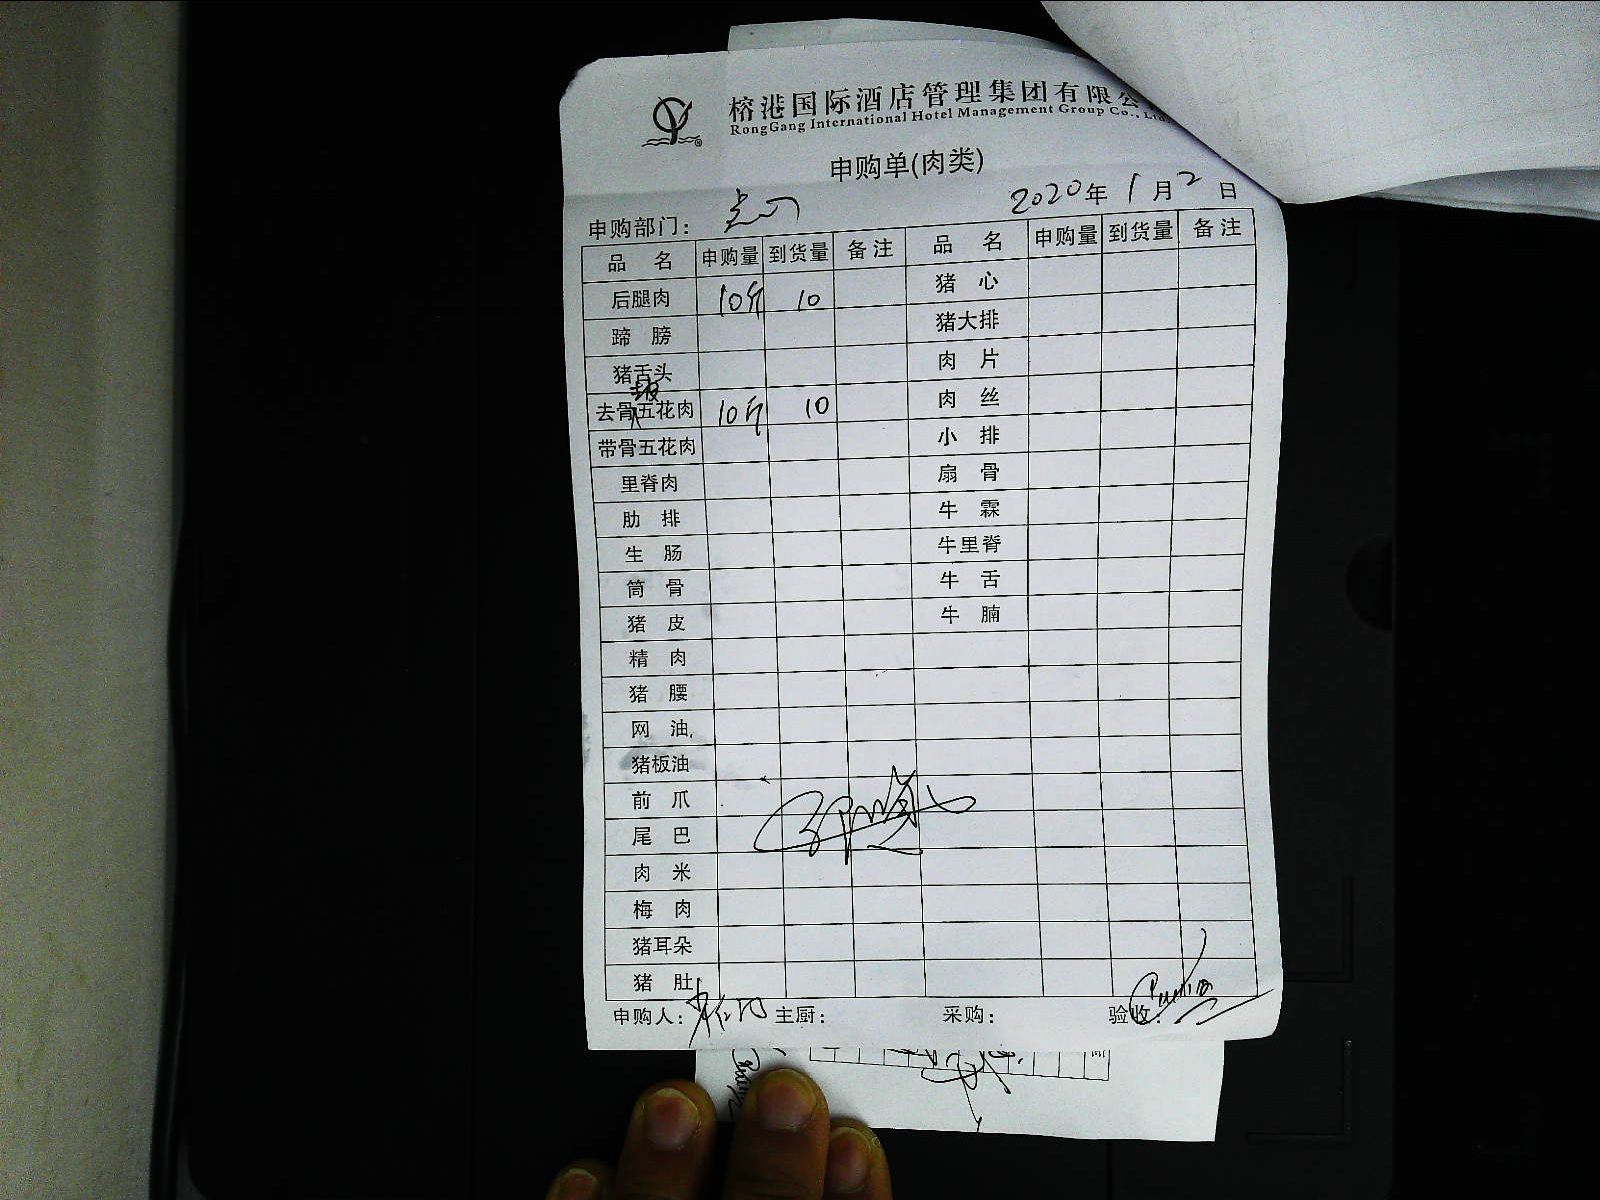 榕港国际酒店管理集团有限公
RongGang International Hotel Management Group Co., Ltd
申购单(肉类)
申购部门: 2020年1月2日
品 名 申购量 到货量 备注 品 名 申购量 到货量 备注
后腿肉 10斤 10 猪 心
蹄 膀 猪大排
猪舌头 肉 片
去骨五花肉 10斤 10 肉 丝
带骨五花肉 小 排
里脊肉 扇 骨
肋 排 牛 霖
生 肠 牛里脊
筒 骨 牛 舌
猪 皮 牛 腩
精 肉
猪 腰
网 油
猪板油
前 爪
尾 巴
肉 米
梅 肉
猪耳朵
猪 肚
申购人: 主厨: 采购: 验收: